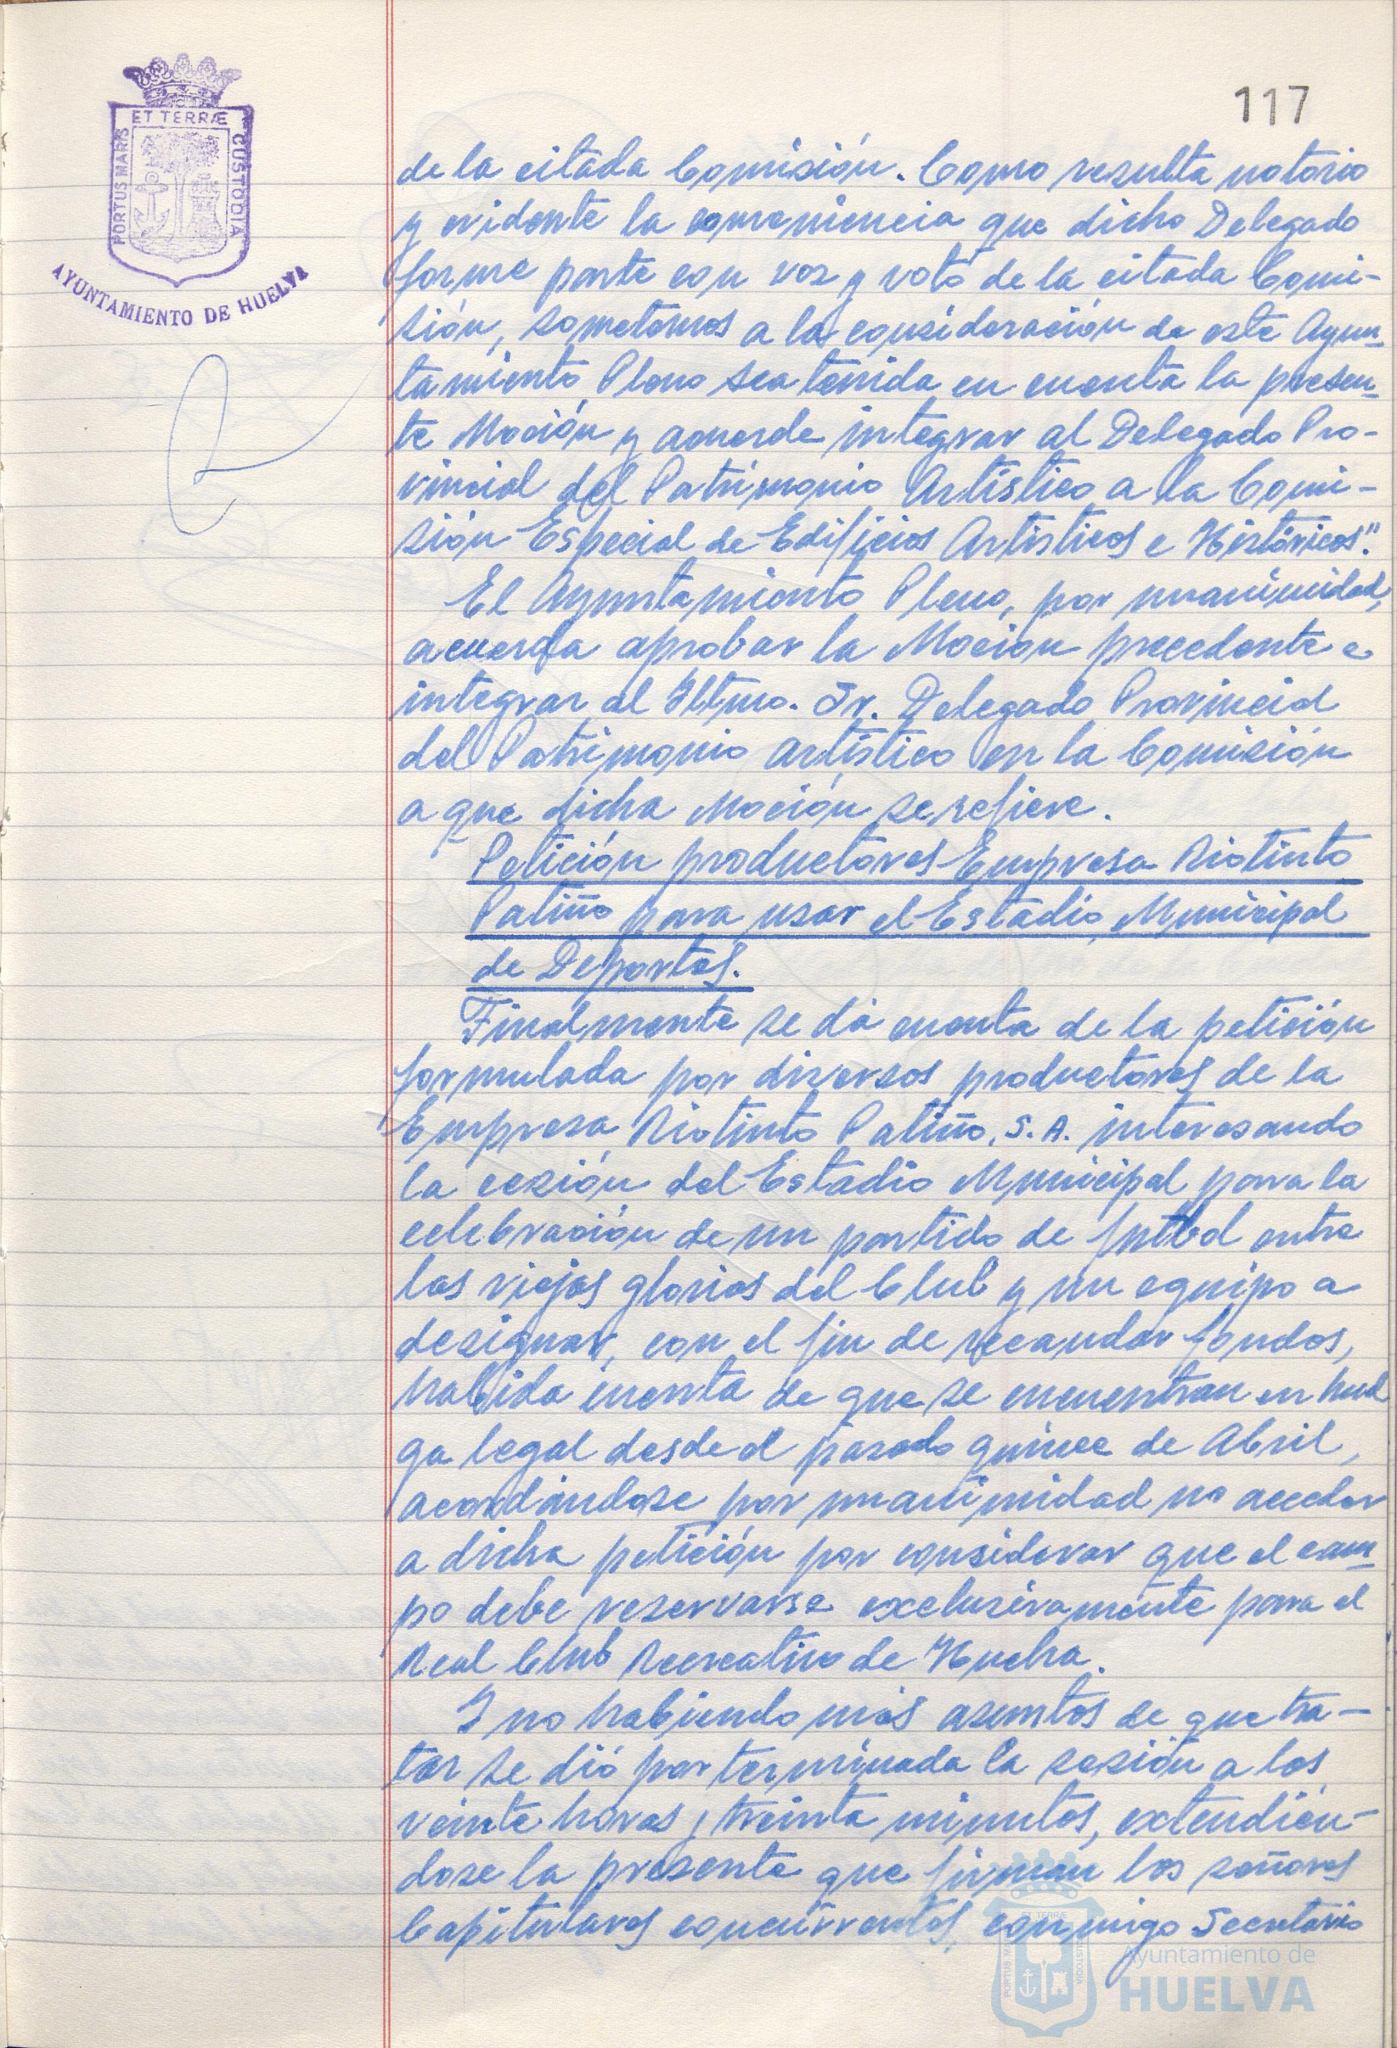 117
PORTUS MARIS ET TERRÆ CUSTODIA
AYUNTAMIENTO DE HUELVA
de la citada Comisión. Como resulta notorio
y evidente la conveniencia que dicho Delegado
forme parte con voz y voto de la citada Comi-
sión, sometemos a la consideración de este Ayun-
tamiento Pleno sea tenida en cuenta la presen-
te Moción y acuerde integrar al Delegado Pro-
vincial del Patrimonio Artístico a la Comi-
sión Especial de Edificios Artísticos e Históricos".
El Ayuntamiento Pleno, por unanimidad,
acuerda aprobar la Moción precedente e
integrar al Iltmo. Sr. Delegado Provincial
del Patrimonio Artístico en la Comisión
a que dicha Moción se refiere.
Petición productores Empresa Riotinto
Patiño para usar el Estadio Municipal
de Deportes.
Finalmente se dá cuenta de la petición
formulada por diversos productores de la
Empresa Riotinto Patiño, S.A. interesando
la cesión del Estadio Municipal para la
celebración de un partido de futbol entre
las viejas glorias del Club y un equipo a
designar, con el fin de recaudar fondos,
habida cuenta de que se encuentran en huel
ga legal desde el pasado quince de Abril,
acordándose por unanimidad no acceder
a dicha petición por considerar que el cam-
po debe reservarse exclusivamente para el
Real Club Recreativo de Huelva.
Y no habiendo más asuntos de que tra-
tar se dió por terminada la sesión a las
veinte horas y treinta minutos, extendién-
dose la presente que firman los señores
Capitulares concurrentes, conmigo Secretario
Ayuntamiento de
HUELVA